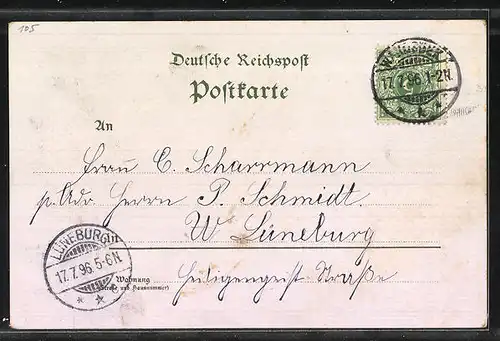 105
Deutsche Reichspost
Postkarte
17.7.96.1-2N.
An
Frau C. Scharrmann
p. Adr. Herrn P. Schmidt.
W Lüneburg
LÜNEBURG
17.7.96.5-6N
Heiligengeist-Straße
Wohnung
(Straße und Hausnummer)